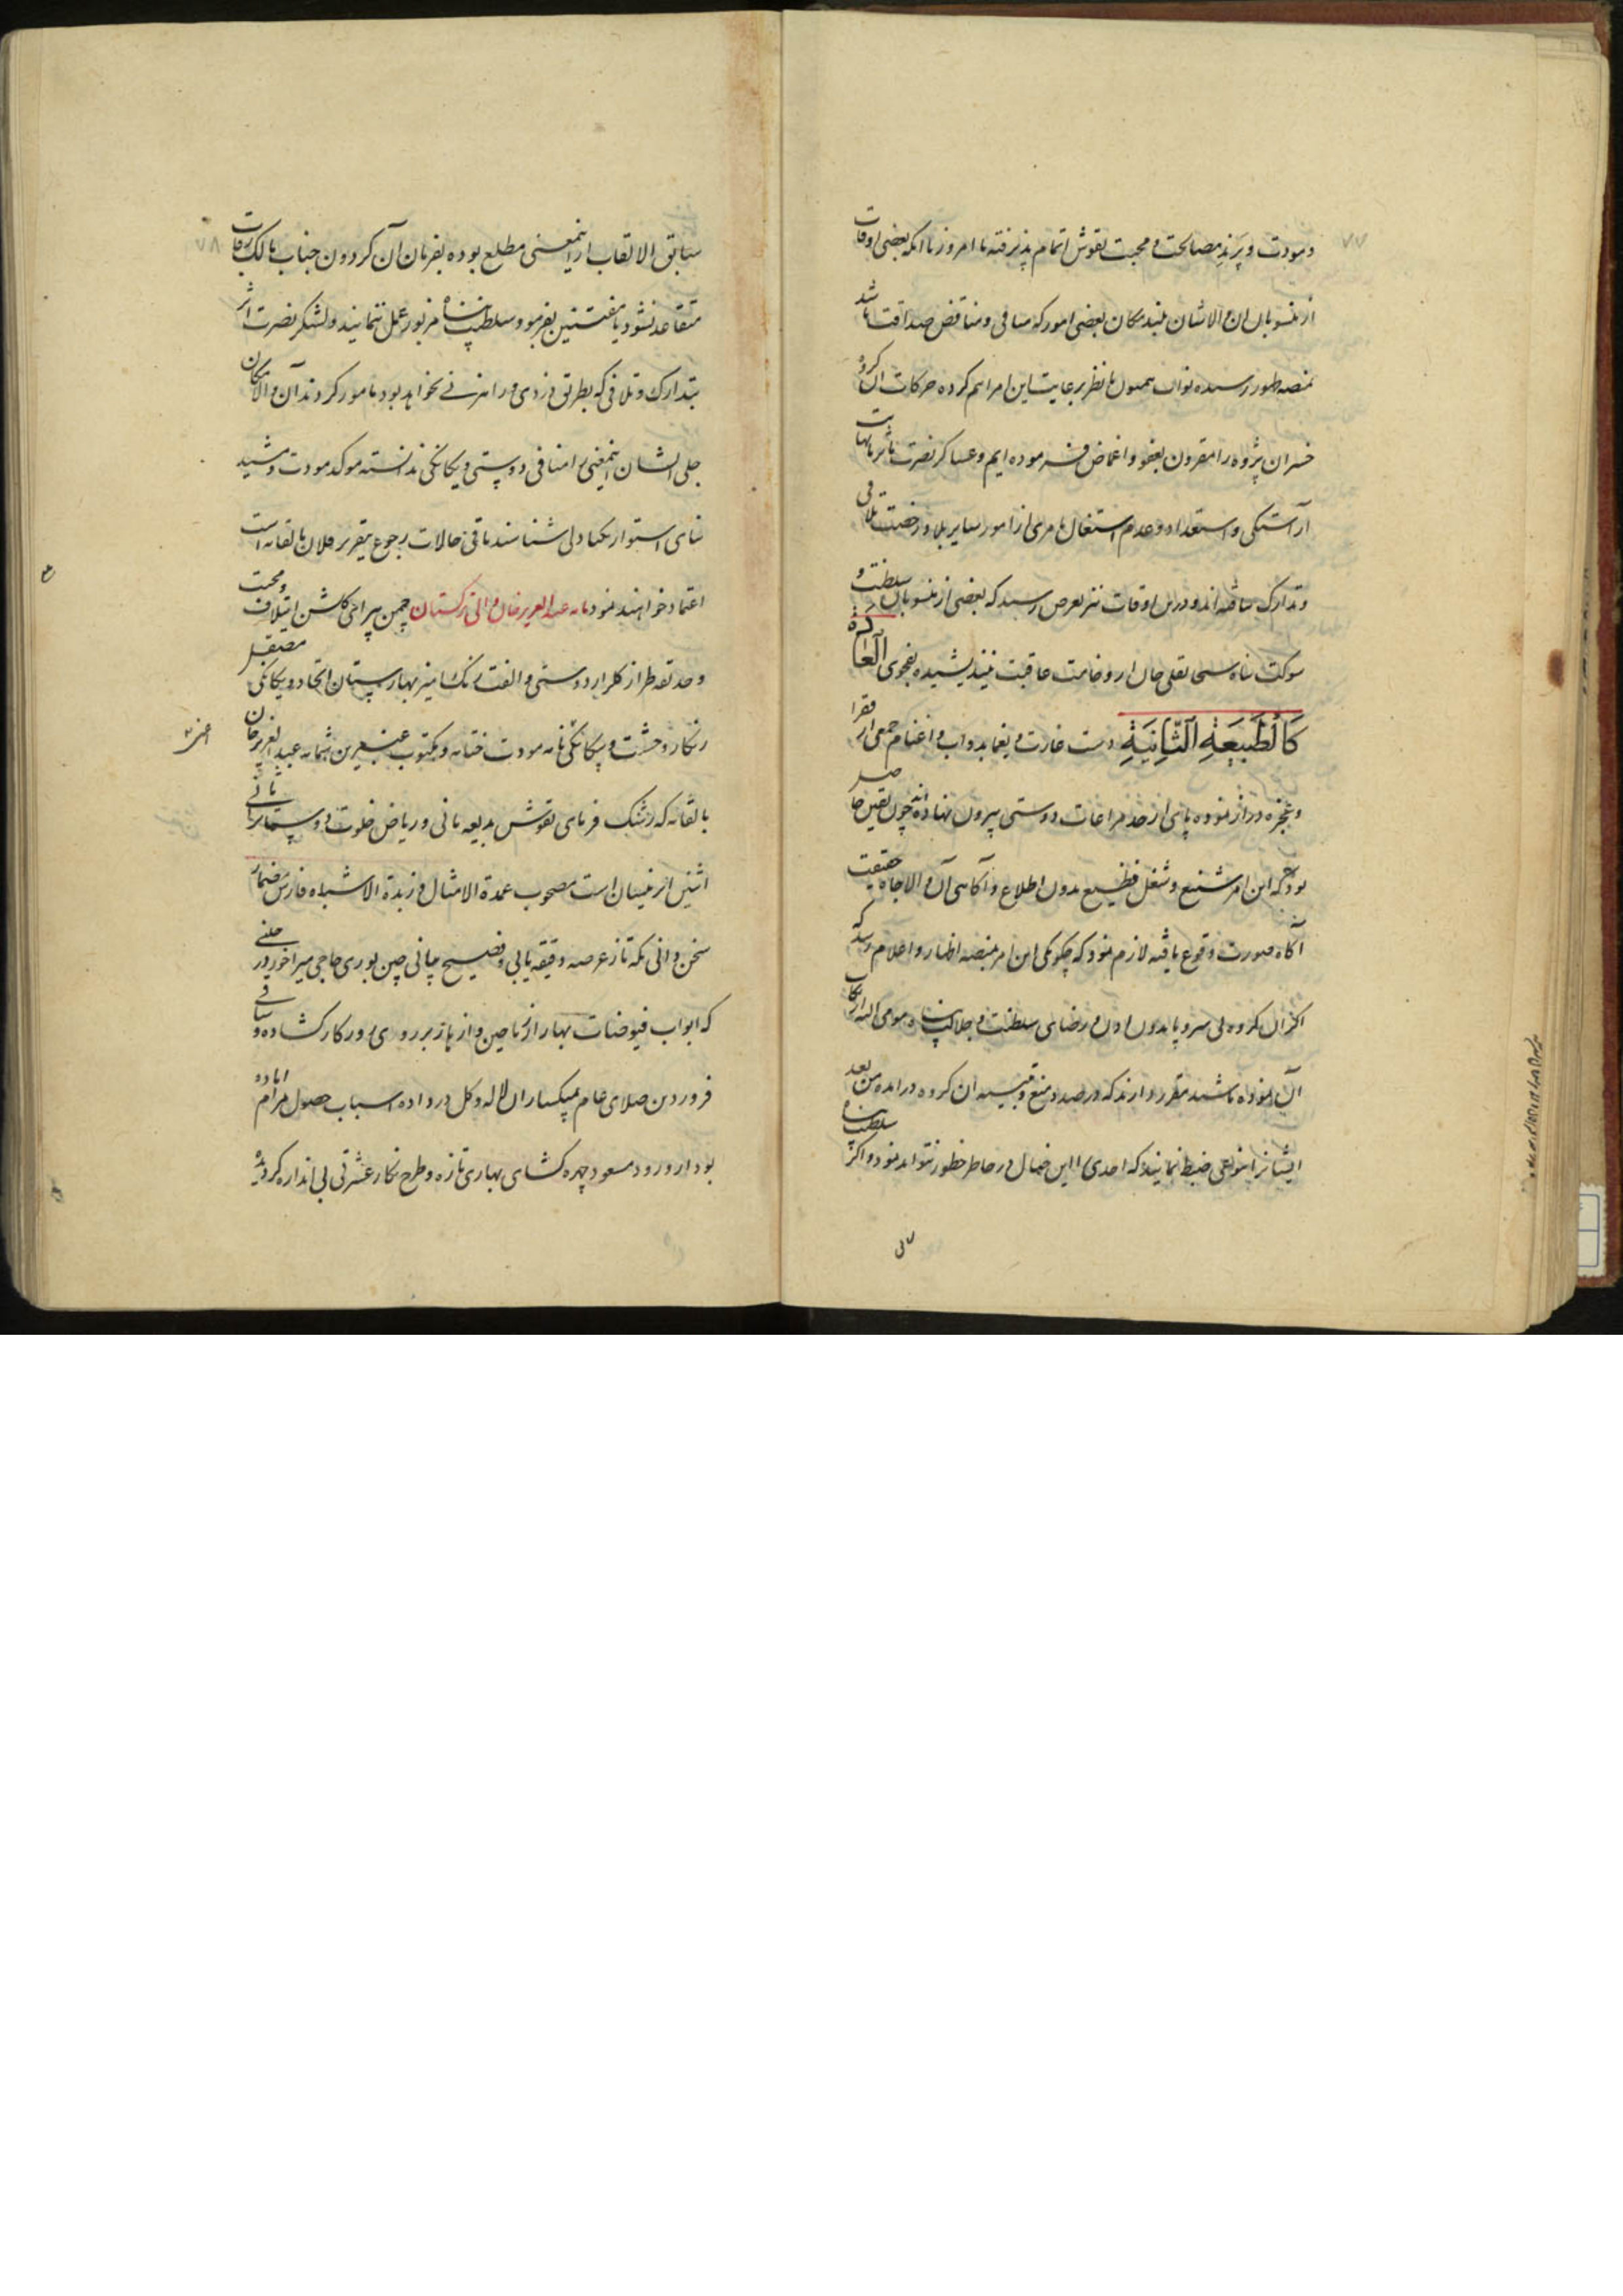 ۷۷
و مودت و پرند مصالحت و محبت بنقوش اتمام پذیرفته تا امروز با آنکه بعضی اوقات
از منسوبان آن والاشان بلند مکان بعضی امور که منافی و مناقض صداقت باشد
بمنصه ظهور رسیده نواب همیون ما نظر برعایت این امر اهم کرده حرکات آن کروه
خسران پژوه را مقرون بعفو و اغماض فرموده ایم و عساکر نصرت ماثر بانهایت
آراستکی و استعداد و عدم اشتغال بامری از امور سایر بلاد رخصت تلافی
و تدارک نیافته اند و درین اوقات نیز بعرض رسید که بعضی از منسوبان سلطنت و
شوکت پناه سبحانقلی خان از وخامت عاقبت نیندیشیده بفحوی العادة
کالطبیعة الثانیة دست غارت و یغما بدواب و اغنام جمعی از فقرا
و عجزه دراز نموده پای از حد مراعات دوستی بیرون نهاده اند چون یقین حاصل
بود که این امر شنیع و شغل فظیع بدون اطلاع و آکاهی آن والاجاه حقیقت
آکاه صورت وقوع یافته لازم نمود که چکونکی این امر بمنصه اظهار و اعلام رسد که
اکر آن کروه بی سر و پا بدون اذن و رضای سلطنت و جلالت پناه مومی الیه ارتکاب
آن نموده باشند مقرر دارند که درصدد منع و تنبیه آن کروه درآمده من بعد
ایشانرا بنوعی ضبط نمایند که احدی را این خیال در خاطر خطور نتواند نمود و اکر سلطنت پناه
سابق الالقاب از اینمعنی مطلع بوده بفرمان آن کردون جناب مالک رقاب
متقاعد نشود یا مفتنین بفرموده سلطنت پناه مزبور عمل ننمایند و لشکر نصرت اثر
بتدارک و تلافی که بطریق دزدی و راهزنی نخواهد بود مامور کردند آن والامکان
جلی الشان اینمعنی را منافی دوستی و یکانکی ندانسته موکد مودت و مشید
بنای استوار یکتادلی شناسند باقی حالات رجوع بتقریر فلان بالقابه است
اعتماد خواهند نمود نامه عبدالعزیزخان والی ترکستان چمن پیرای کلشن ایتلاف و محبت
و حدیقه طراز کلزار دوستی و الفت رنک آمیز بهارستان اتحاد و یکانکی مصیقل
زنکار وحشت و بیکانکی نامه مودت ختامه و مکتوب عنبرین شمامه عبدالعزیزخان
بالقابه که رشک فرمای نقوش بدیعه مانی و ریاض خلوت دوستانرا ثانی
اثنین ابر نیسان است مصحوب عمدة الامثال و زبدة الاشباه فارس مضمار
سخن دانی یکه تاز عرصه دقیقه یابی و فصیح بیانی چین بوری حاجی میراخور در حینی
که ابواب فیوضات بهار از ریاحین و ازهار بر روی روزکار کشاده و ساقی
فروردین صلای عام بمیکساران لاله و کل در داده اسباب حصول مرام آماده
بود از ورود مسعود چهره کشای بهاری تازه و طرح نکار عشرتی بی اندازه کردید